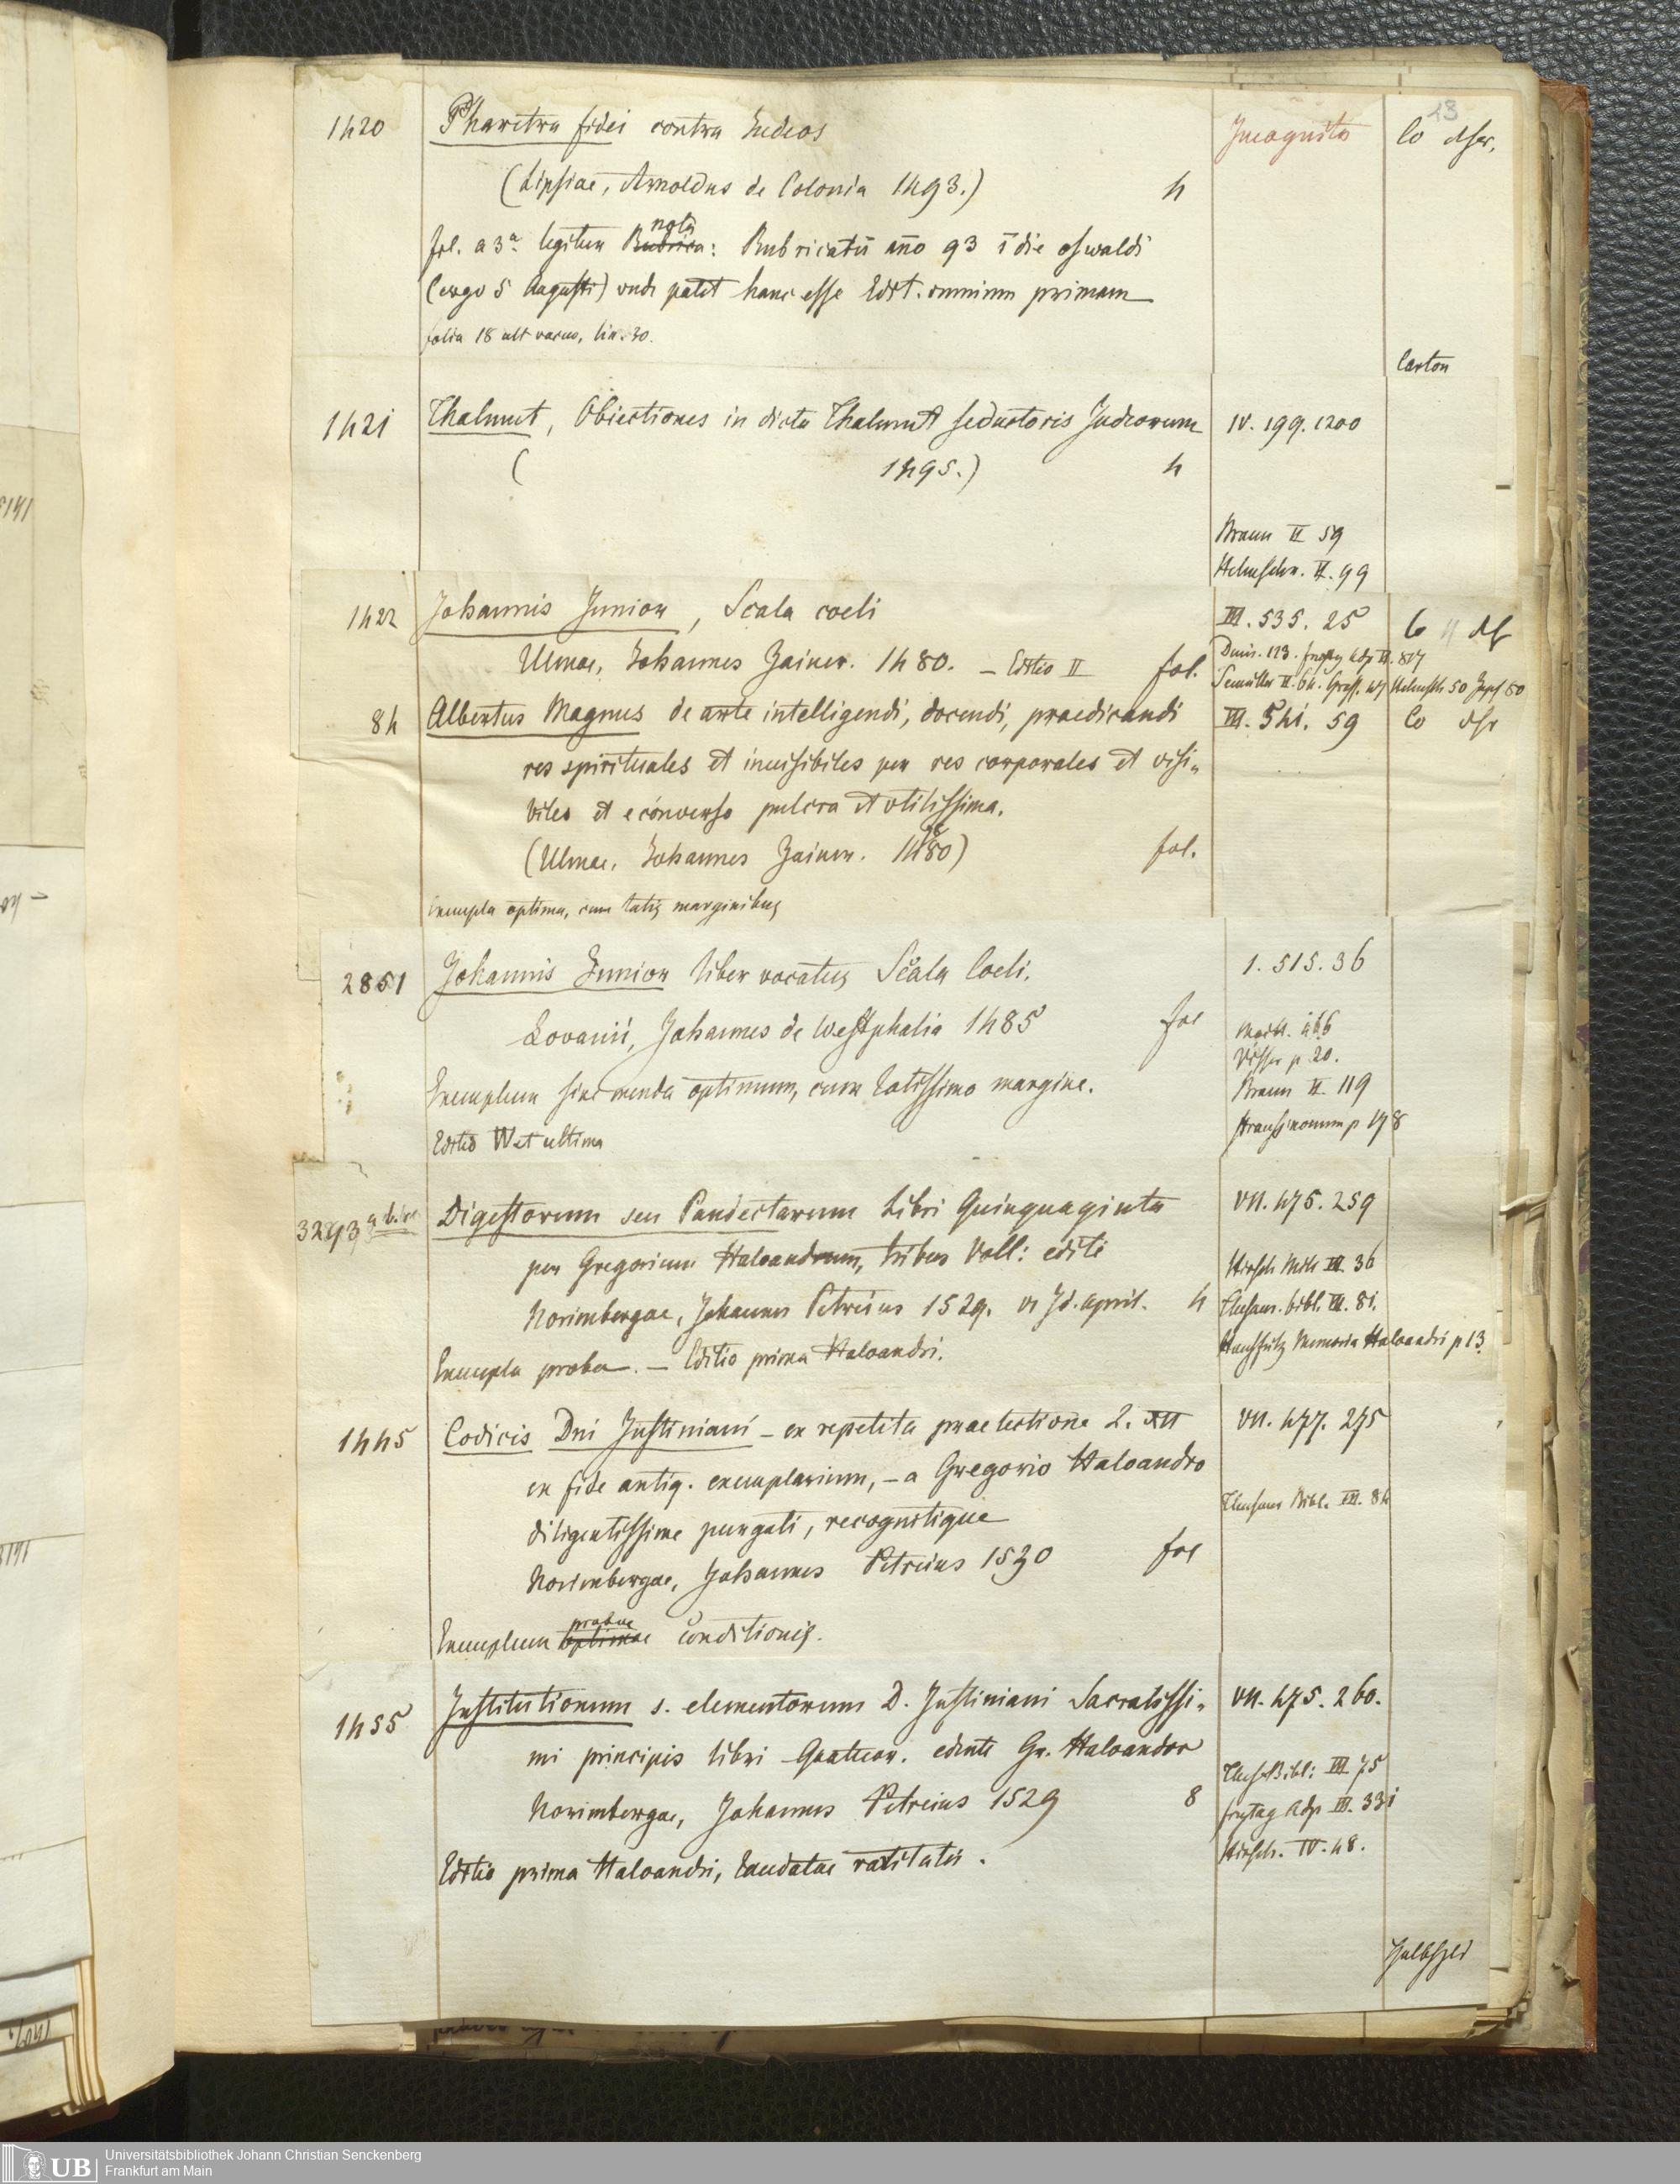 13
1420 Pharetra fidei contra Iudeos Incognita
(Lipsiae, Arnoldus de Colonia 1493.) 4
fol. a 3a legitur nota: Rubricatū año 93 ī die oswaldi
(ergo 5 Augusti) unde patet hanc esse Edit. omnium primam
folia 18 ult vacuo, lin. 30.
Carton
1421 Thalmut, Obiectiones in dicta Thalmut seductoris Judeorum IV. 199. 1200
( 1495.) 4
Braun II 59
Helmschr. II. 99
1422 Johannis Junior, Scala coeli III. 535. 25
Ulmae, Johannes Zainer. 1480. – Editio II fol.
84 Albertus Magnus de arte intelligendi, docendi, praedicandi III. 541. 59
res spirituales et invisibiles per res corporales et visi-
biles et econverso pulcra et utilissima.
(Ulmae, Johannes Zainer. 1480) fol.
Exempla optima, cum latis marginibus
2851 Johannis Junior liber vocatus Scala Coeli. 1. 515. 36
Lovanii, Johannes de Westphalia 1485 fol
Visser p. 20.
Exemplum sine menda optimum, cum latissimo margine. Braun II. 119
Editio et ultima
3293 Digestorum seu Pandectarum Libri Quinquaginta VII. 475. 259
per Gregorium Haloandrum, tribus Voll: editi
Norimbergae, Johannes Petreius 1529. VI Id. April. 4
Hirsch Mill III. 36
bibl. III. 81.
Memoria Haloandri p 13.
Exempla proba. – Editio prima Haloandri.
1445 Codicis Dni Justiniani – ex repetita praelectione L. XII VII. 477. 275
ex fide antiq. exemplarium, – a Gregorio Haloandro
diligentissime purgati, recognitique
Norimbergae, Johannes Petreius 1530 fol
Bibl. III. 84
Exemplum probae conditionis.
1455 Institutionum s. elementorum D. Justiniani Sacratissi- VII. 475. 260.
mi principis libri Quatuor. edente Gr. Haloandro
Norimbergae, Johannes Petreius 1529 8
Bibl: III 75
freytag Adp III. 331
Hirsch. IV. 48.
Editio prima Haloandri, laudatae raritatis.
UB Universitätsbibliothek Johann Christian Senckenberg
Frankfurt am Main